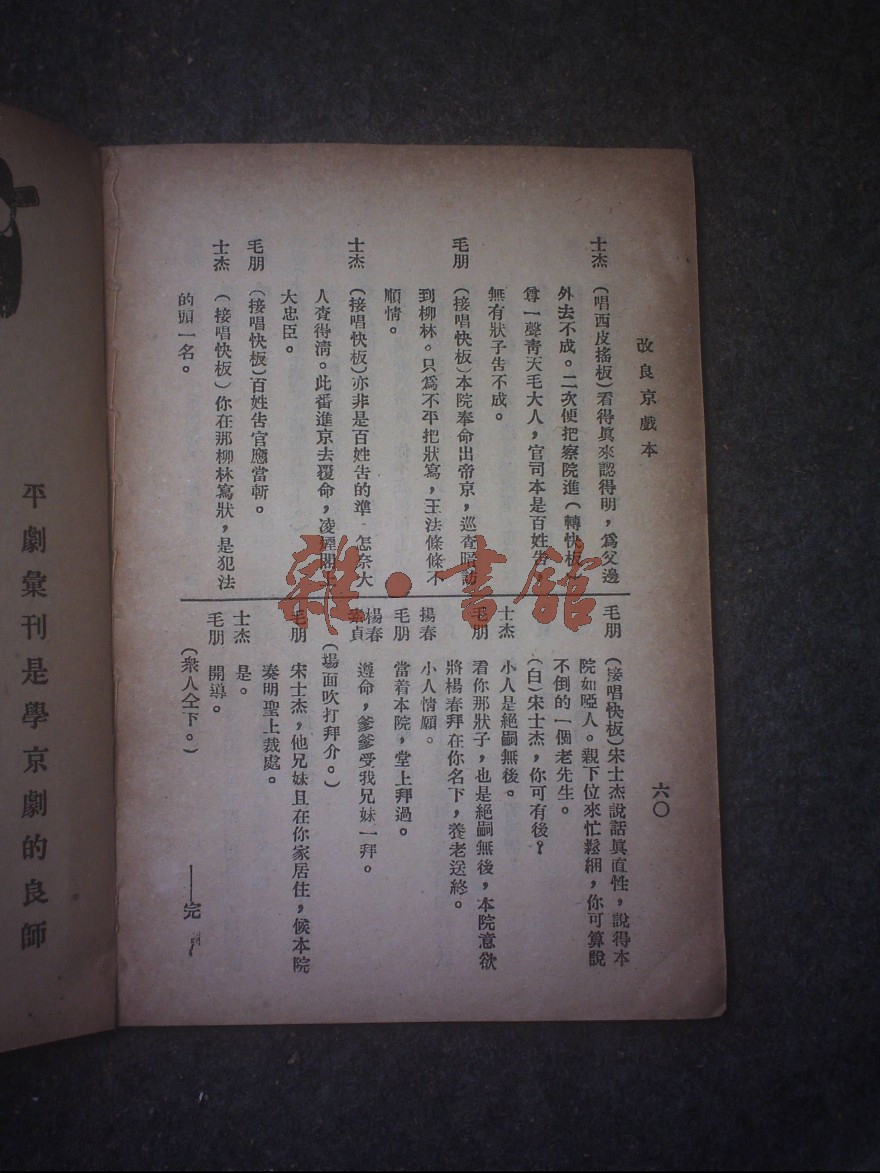 改良京戲本
六〇
士杰 (唱西皮搖板)看得眞來認得明，爲父邊
外去不成。二次便把察院進(轉快板)
尊一聲靑天毛大人，官司本是百姓告，
無有狀子告不成。
毛朋 (接唱快板)本院奉命出帝京，巡查暗訪
到柳林。只爲不平把狀寫，王法條條不
順情。
士杰 (接唱快板)亦非是百姓告的準 怎奈大
人查得淸。此番進京去覆命，凌煙閣上
大忠臣。
毛朋 (接唱快板)百姓告官應當斬。
士杰 (接唱快板)你在那柳林寫狀，是犯法
的頭一名。
毛朋 (接唱快板)宋士杰說話眞直性，說得本
院如啞人。親下位來忙鬆綑，你可算說
不倒的一個老先生。
(白)宋士杰，你可有後？
士杰 小人是絕嗣無後。
毛朋 看你那狀子，也是絕嗣無後，本院意欲
將楊春拜在你名下，養老送終。
揚春 小人情願。
毛朋 當着本院，堂上拜過。
楊春
素貞 遵命，爹爹受我兄妹一拜。
(場面吹打拜介。)
毛朋 宋士杰，他兄妹且在你家居住，候本院
奏明聖上裁處。
士杰 是。
毛朋 開導。
(衆人仝下。)
——完
平劇彙刊是學京劇的良師
雜·書館